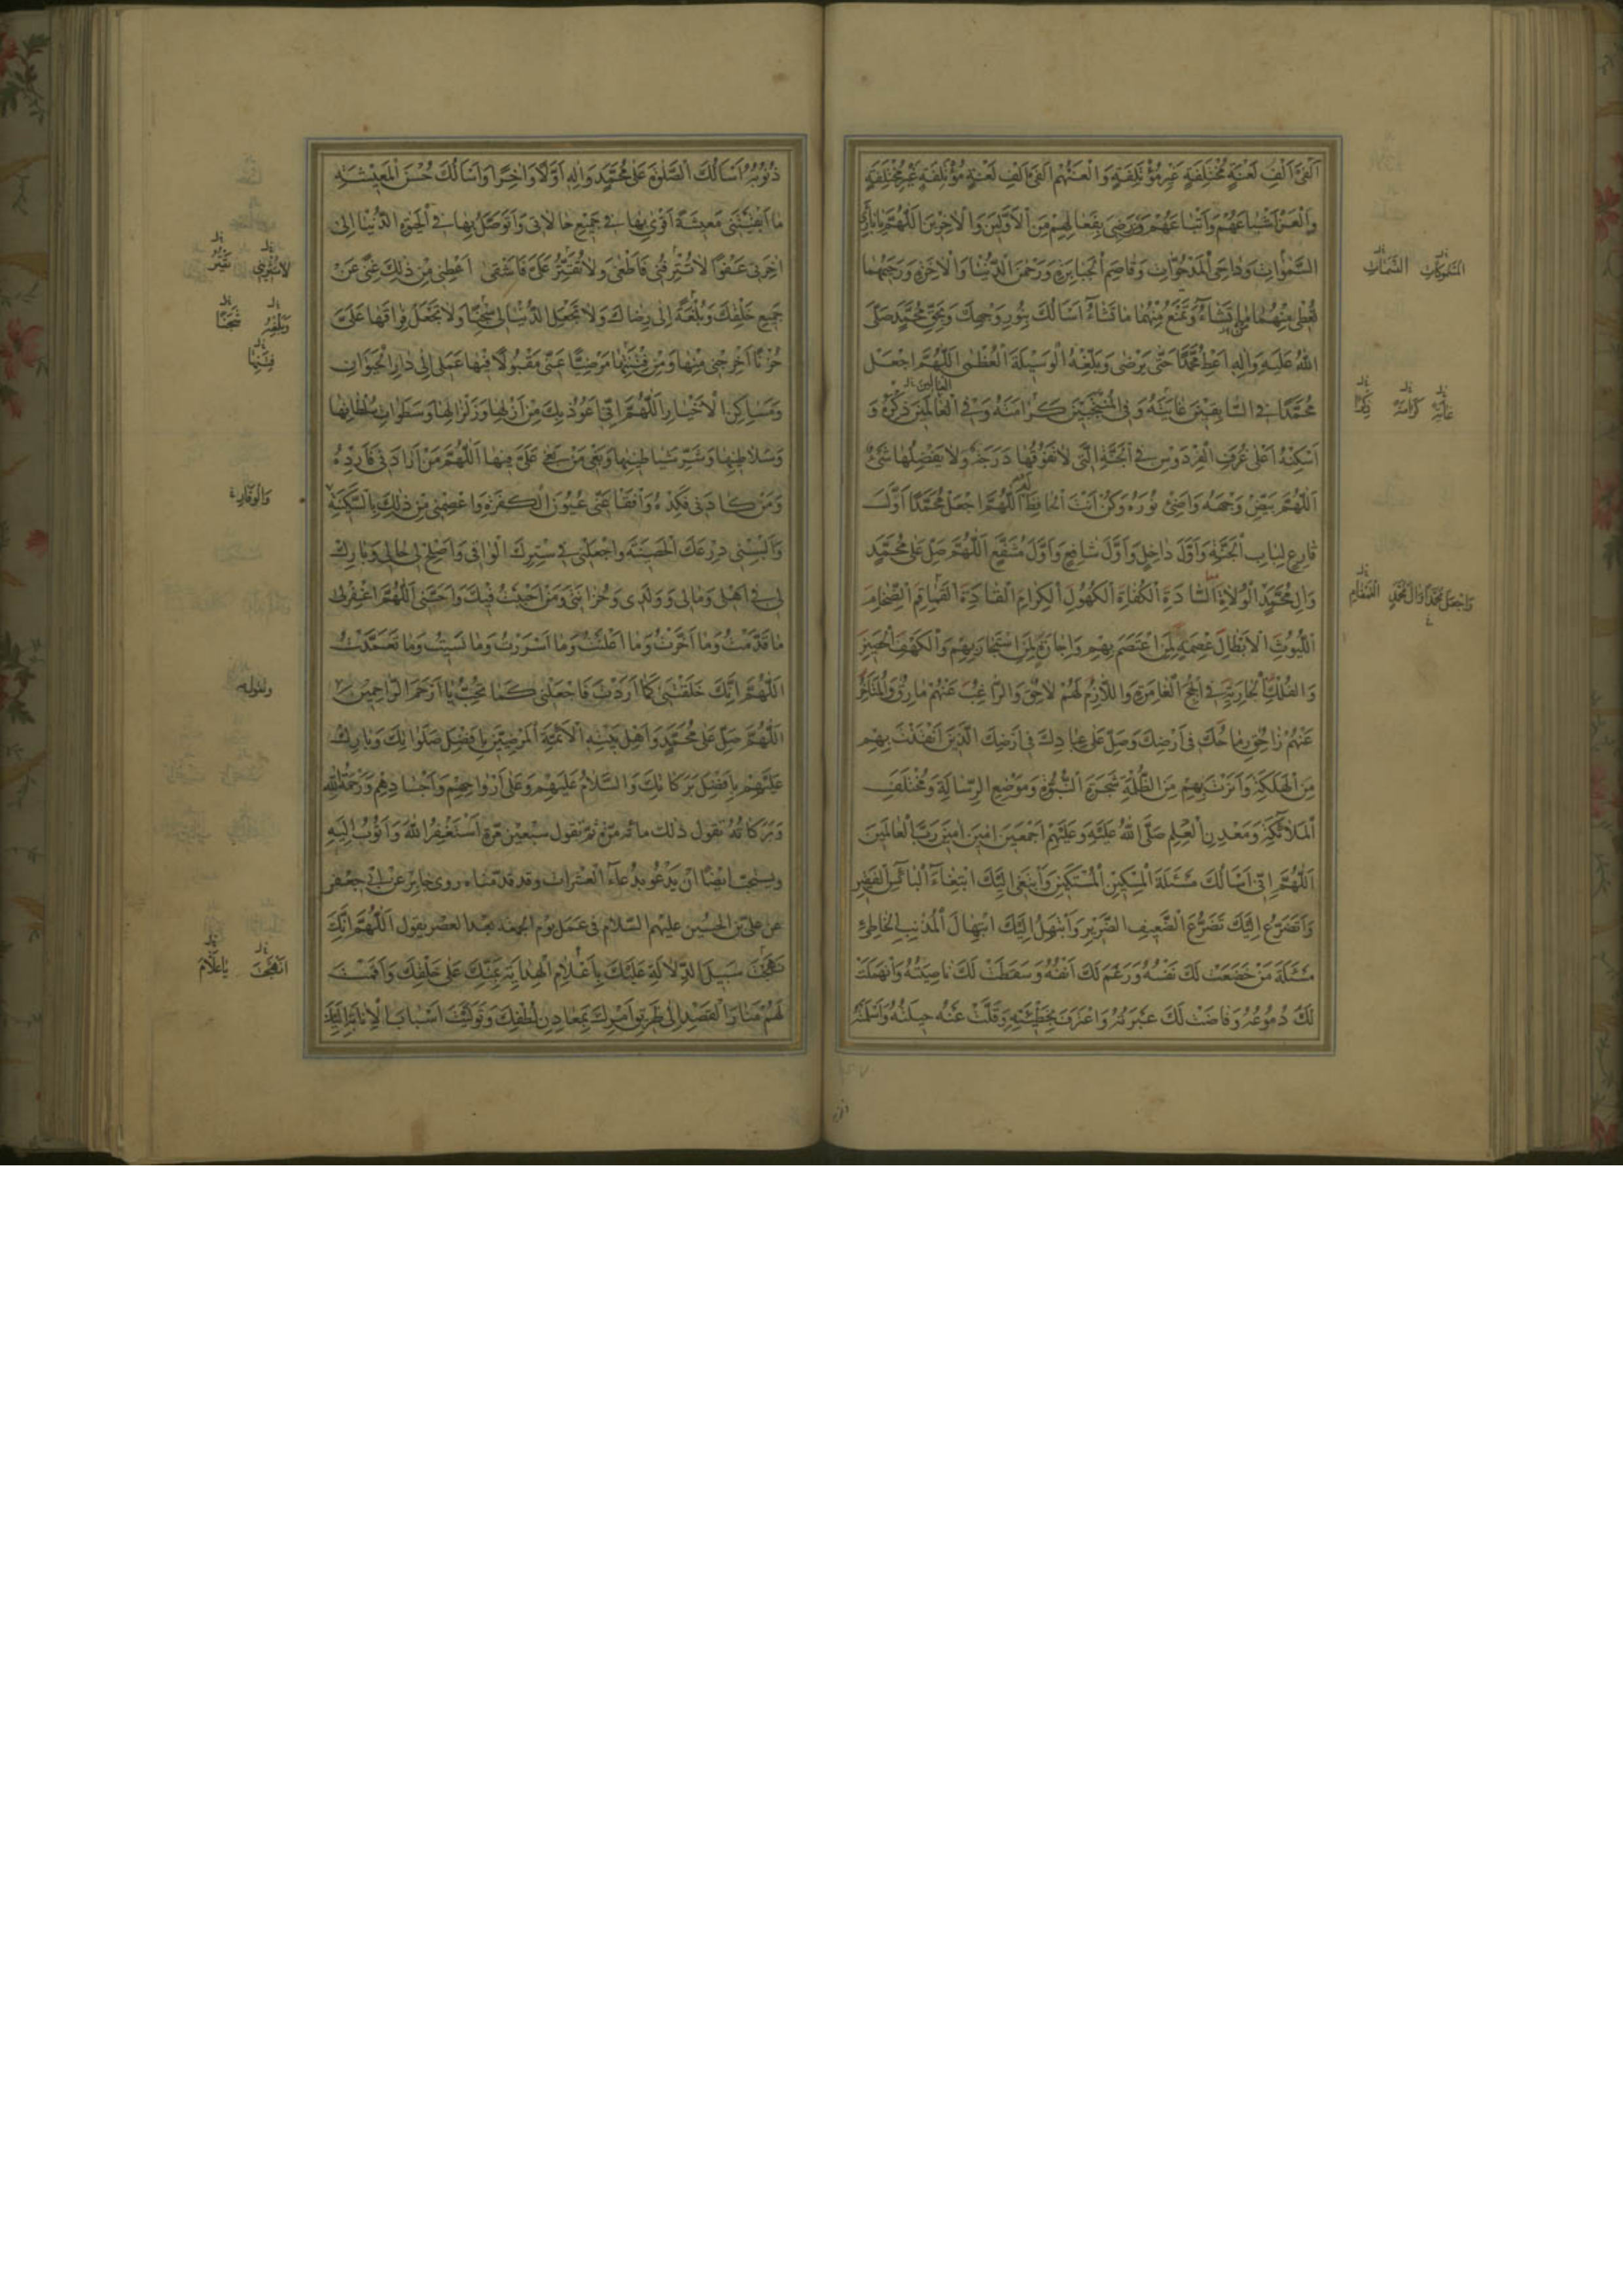 اَلْفَیْ اَلْفِ لَعْنَةٍ مُخْتَلِفَةٍ غَیْرِ مُؤْتَلِفَةٍ وَالْعَنْهُمْ اَلْفَیْ اَلْفِ لَعْنَةٍ مُؤْتَلِفَةٍ غَیْرِ مُخْتَلِفَةٍ
وَالْعَنْ اَشْیاعَهُمْ وَاَتْباعَهُمْ وَمَنْ رَضِیَ بِفِعالِهِمْ مِنَ الْاَوَّلینَ وَالْاخِرینَ اَللّهُمَّ یا بارِئَ
السَّمواتِ وَداحِیَ الْمَدْحُوّاتِ وَقاصِمَ الْجَبابِرَةِ وَرَحْمنَ الدُّنْیا وَالْاخِرَةِ وَرَحیمَهُما
تُعْطی مِنْهُما ما تَشاءُ وَتَمْنَعُ مِنْهُما ما تَشاءُ اَسْاَلُكَ بِنُورِ وَجْهِكَ وَبِحَقِّ مُحَمَّدٍ صَلَّی
اللّهُ عَلَیْهِ وَالِهِ اَعْطِ مُحَمَّدًا حَتّی یَرْضی وَبَلِّغْهُ الْوَسیلَةَ الْعُظْمی اَللّهُمَّ اجْعَلْ
مُحَمَّدًا فِی السّابِقینَ غایَتَهُ وَفِی الْمُنْتَجَبینَ كَرامَتَهُ وَفِی الْعالَمینَ ذِكْرَهُ وَ
اَسْكِنْهُ اَعْلی غُرَفِ الْفِرْدَوْسِ فِی الْجَنَّةِ الَّتی لا تَفُوقُها دَرَجَةٌ وَلا یَفْضُلُها شَیْءٌ
اَللّهُمَّ بَیِّضْ وَجْهَهُ وَاَضِئْ نُورَهُ وَكُنْ اَنْتَ الْحافِظَ اَللّهُمَّ اجْعَلْ مُحَمَّدًا اَوَّلَ
قارِعٍ لِبابِ الْجَنَّةِ وَاَوَّلَ داخِلٍ وَاَوَّلَ شافِعٍ وَاَوَّلَ مُشَفَّعٍ اَللّهُمَّ صَلِّ عَلی مُحَمَّدٍ
وَالِ مُحَمَّدٍ الْوُلاةِ السّادَةِ الْكُفاةِ الْكُهُولِ الْكِرامِ الْقادَةِ الْقَماقِمِ الضِّخامِ
اللُّیُوثِ الْاَبْطالِ عِصْمَةٍ لِمَنِ اعْتَصَمَ بِهِمْ وَاِجارَةٍ لِمَنِ اسْتَجارَ بِهِمْ وَالْكَهْفِ الْحَصینِ
وَالْفُلْكِ الْجارِیَةِ فِی اللُّجَجِ الْغامِرَةِ وَاللّازِمُ لَهُمْ لاحِقٌ وَالرّاغِبُ عَنْهُمْ مارِقٌ وَالْمُتَاَخِّرُ
عَنْهُمْ زاهِقٌ رِماحُكَ فی اَرْضِكَ وَصَلِّ عَلی عِبادِكَ فی اَرْضِكَ الَّذینَ اَنْقَذْتَ بِهِمْ
مِنَ الْهَلَكَةِ وَاَنَرْتَ بِهِمْ مِنَ الظُّلْمَةِ شَجَرَةِ النُّبُوَّةِ وَمَوْضِعِ الرِّسالَةِ وَمُخْتَلَفِ
الْمَلائِكَةِ وَمَعْدِنِ الْعِلْمِ صَلَّی اللّهُ عَلَیْهِ وَعَلَیْهِمْ اَجْمَعینَ امینَ امینَ رَبَّ الْعالَمینَ
اَللّهُمَّ اِنّی اَسْاَلُكَ مَسْئَلَةَ الْمِسْكینِ الْمُسْتَكینِ وَاَبْتَغی اِلَیْكَ ابْتِغاءَ الْبائِسِ الْفَقیرِ
وَاَتَضَرَّعُ اِلَیْكَ تَضَرُّعَ الضَّعیفِ الضَّریرِ وَاَبْتَهِلُ اِلَیْكَ ابْتِهالَ الْمُذْنِبِ الْخاطِئِ
مَسْئَلَةَ مَنْ خَضَعَتْ لَكَ نَفْسُهُ وَرَغَمَ لَكَ اَنْفُهُ وَسَقَطَتْ لَكَ ناصِیَتُهُ وَانْهَمَلَتْ
لَكَ دُمُوعُهُ وَفاضَتْ لَكَ عَبْرَتُهُ وَاعْتَرَفَ بِخَطیئَتِهِ وَقَلَّتْ عَنْهُ حیلَتُهُ وَاَسْلَمَتْهُ
السَّمُوكاتِ
غایَتَهُ كَرامَتَهُ ذِكْرَهُ
وَاجْعَلْ مُحَمَّدًا وَالَ مُحَمَّدٍ
ذُنُوبُهُ اَسْاَلُكَ الصَّلوةَ عَلی مُحَمَّدٍ وَالِهِ اَوَّلًا وَاخِرًا وَاَسْاَلُكَ حُسْنَ الْمَعیشَةِ
ما اَبْقَیْتَنی مَعیشَةً اَقْوی بِها فی جَمیعِ حالاتی وَاَتَوَصَّلُ بِها فِی الْحَیوةِ الدُّنْیا اِلی
اخِرَتی عَفْوًا لا تُتْرِفْنی فَاَطْغی وَلا تُقَتِّرْ عَلَیَّ فَاَشْقی اَعْطِنی مِنْ ذلِكَ غِنًی عَنْ
جَمیعِ خَلْقِكَ وَبُلْغَةً اِلی رِضاكَ وَلا تَجْعَلِ الدُّنْیا لی سِجْنًا وَلا تَجْعَلْ فِراقَها عَلَیَّ
حُزْنًا اَخْرِجْنی مِنْها وَمِنْ فِتْنَتِها مَرْضِیًّا عَنّی مَقْبُولًا فیها عَمَلی اِلی دارِ الْحَیَوانِ
وَمَساكِنِ الْاَخْیارِ اَللّهُمَّ اِنّی اَعُوذُ بِكَ مِنْ اَزْلِها وَزَلْزالِها وَسَطَواتِ سُلْطانِها
وَسَلاطینِها وَشَرِّ شَیاطینِها وَبَغْیِ مَنْ بَغی عَلَیَّ فیها اَللّهُمَّ مَنْ اَرادَنی فَاَرِدْهُ
وَمَنْ كادَنی فَكِدْهُ وَافْقَأْ عَنّی عُیُونَ الْكَفَرَةِ وَاعْصِمْنی مِنْ ذلِكَ بِالسَّكینَةِ
وَاَلْبِسْنی دِرْعَكَ الْحَصینَةَ وَاجْعَلْنی فی سِتْرِكَ الْواقی وَاَصْلِحْ لی حالی وَبارِكْ
لی فی اَهْلی وَمالی وَوَلَدی وَحُزانَتی وَمَنْ اَحْبَبْتُ فیكَ وَاَحَبَّنی اَللّهُمَّ اغْفِرْ لی
ما قَدَّمْتُ وَما اَخَّرْتُ وَما اَعْلَنْتُ وَما اَسْرَرْتُ وَما نَسیتُ وَما تَعَمَّدْتُ
اَللّهُمَّ اِنَّكَ خَلَقْتَنی كَما اَرَدْتَ فَاجْعَلْنی كَما تُحِبُّ یا اَرْحَمَ الرّاحِمینَ
اَللّهُمَّ صَلِّ عَلی مُحَمَّدٍ وَاَهْلِ بَیْتِهِ الْاَئِمَّةِ الْمَرْضِیّینَ بِاَفْضَلِ صَلَواتِكَ وَبارِكْ
عَلَیْهِمْ بِاَفْضَلِ بَرَكاتِكَ وَالسَّلامُ عَلَیْهِمْ وَعَلی اَرْواحِهِمْ وَاَجْسادِهِمْ وَرَحْمَةُ اللّهِ
وَبَرَكاتُهُ تقول ذلك مائة مرّة ثمّ تقول سبعین مرّة اَسْتَغْفِرُ اللّهَ وَاَتُوبُ اِلَیْهِ
ویستحبّ ایضًا ان یدعو بدعاء العشرات وقد قدّمناه روی جابر عن ابی جعفر
عن علیّ بن الحسین علیهم السّلام فی عمل یوم الجمعة بعد العصر یقول اَللّهُمَّ اِنَّكَ
نَهَجْتَ سَبیلَ الدَّلالَةِ عَلَیْكَ بِاَعْلامِ الْهِدایَةِ بِمَنِّكَ عَلی خَلْقِكَ وَاَقَمْتَ
لَهُمْ مَنارَ الْقَصْدِ اِلی طَریقِ اَمْرِكَ بِمَعادِنِ لُطْفِكَ وَتَوَلَّیْتَ اَسْبابَ الْاِنابَةِ اِلَیْكَ
وَالْوَقارِ